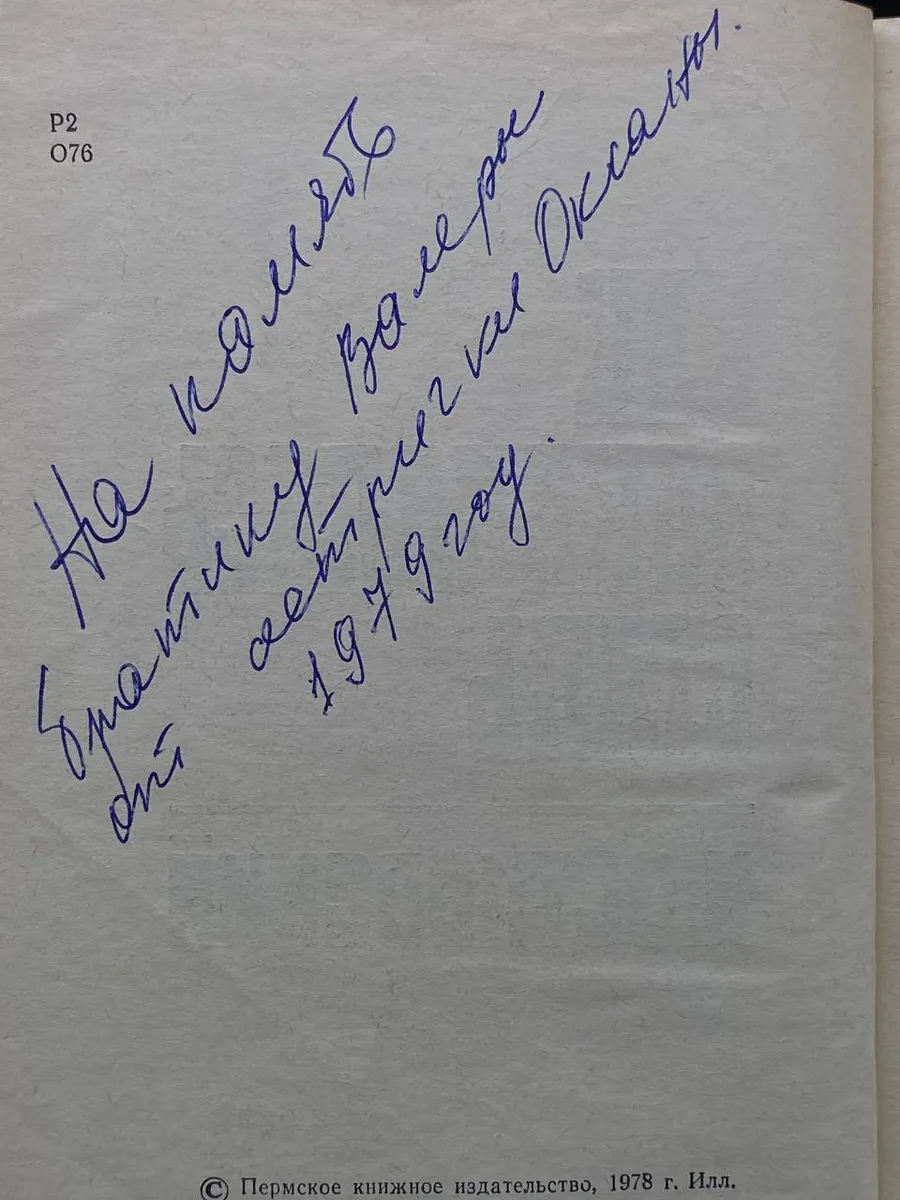 Р2
О76
На память
Братику Валеры
от сестрички Оксаны.
1979 году.
© Пермское книжное издательство, 1978 г. Илл.